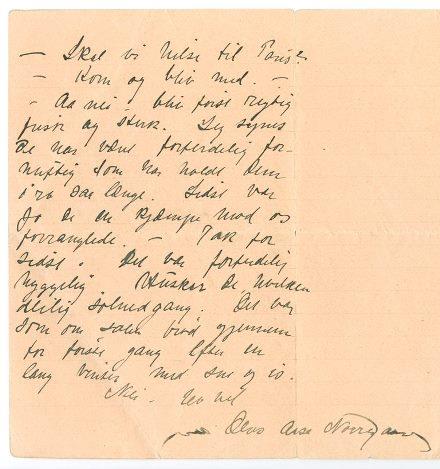 — Skal vi hilse til Paris?
— Kom og bliv med. —
- Aa nei, bliv først rigtig
frisk og sterk. Jeg synes
De har været forferdelig for-
nuftig som har holdt Dem
i ro saa længe. Sidst var
jo De en kjæmpe mod os
forvanglede. — Tak for
sidst. Det var forferdelig
hyggelig. Husker De hvilken
deilig solnedgang. Det var
som om solen brød gjennem
for første gang efter en
lang vinter med sne og is.
Nei. Lev vel
Deres Aase Nørregaard